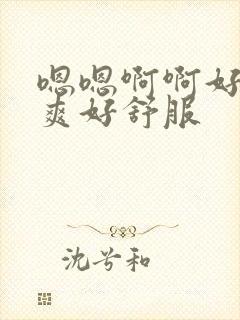 嗯嗯啊啊好
爽好舒服
沈兮和